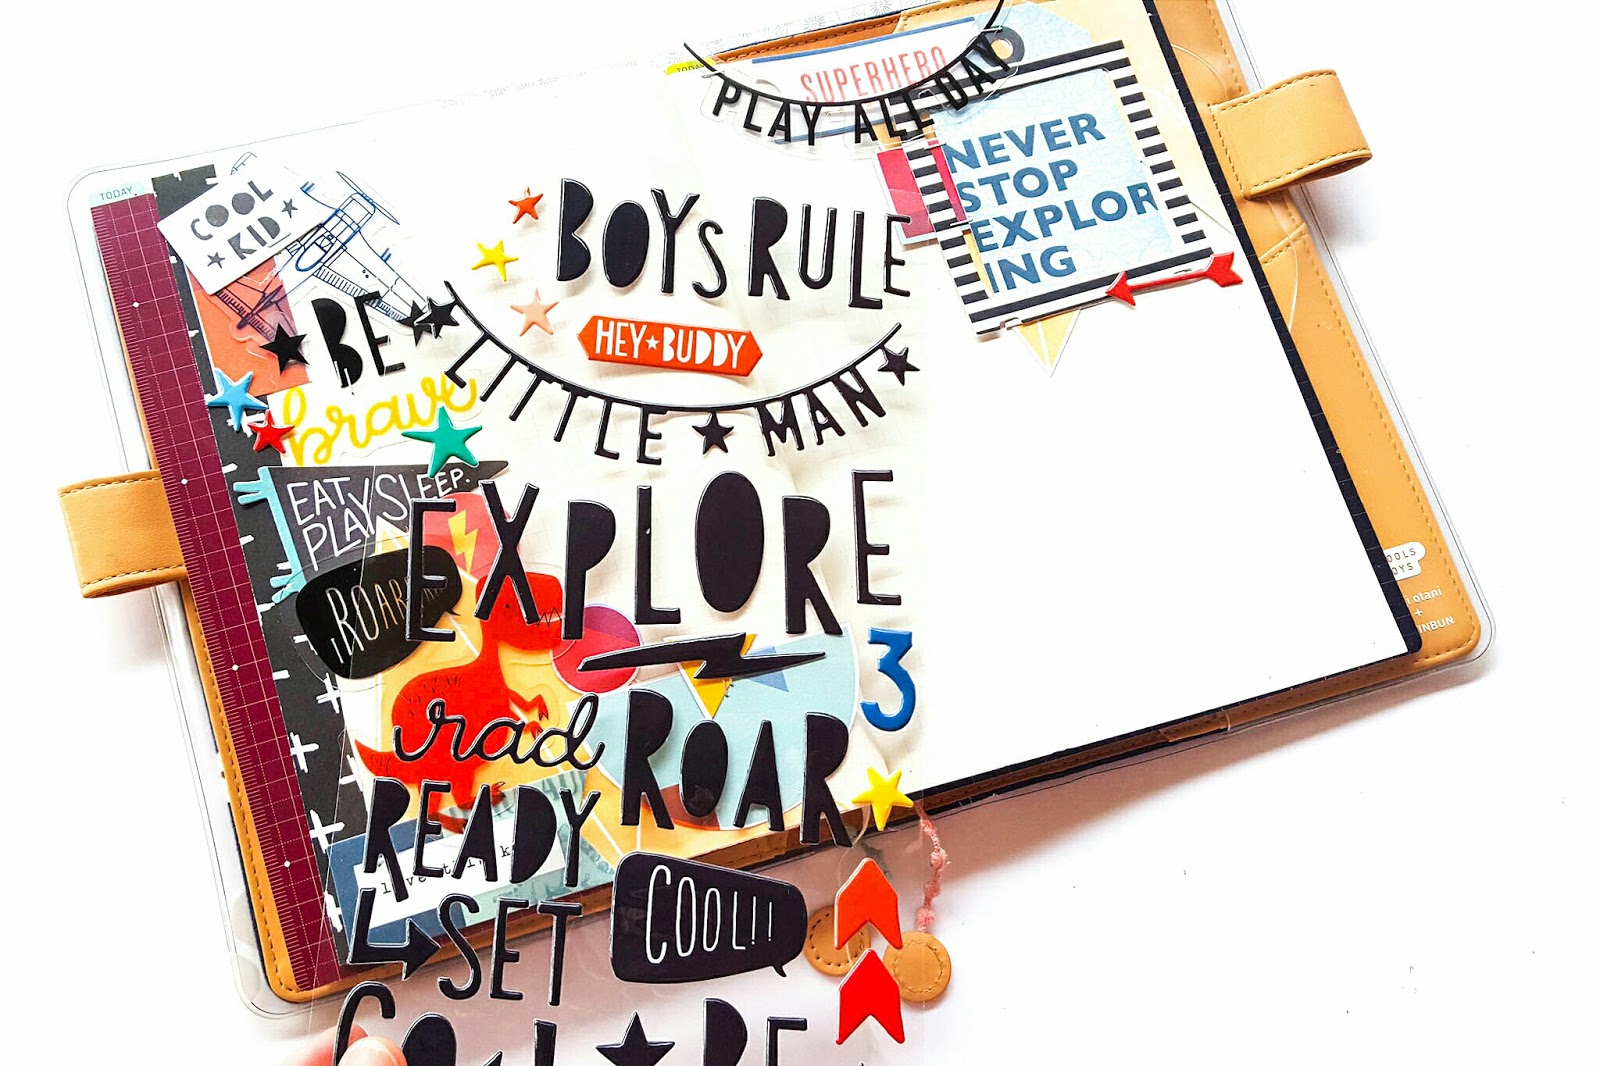 TODAY
SUPERHERO
PLAY ALL DAY
NEVER
STOP
EXPLOR
ING
TODAY
COOL
KID
BOYS RULE
HEY BUDDY
BE
brave
LITTLE MAN
EAT.
PLAY.SLEEP.
EXPLORE
ROAR
3
rad
ROAR
READY
SET
COOL!!
GO
BE
OOLS
OYS
i otani
+
INBUN